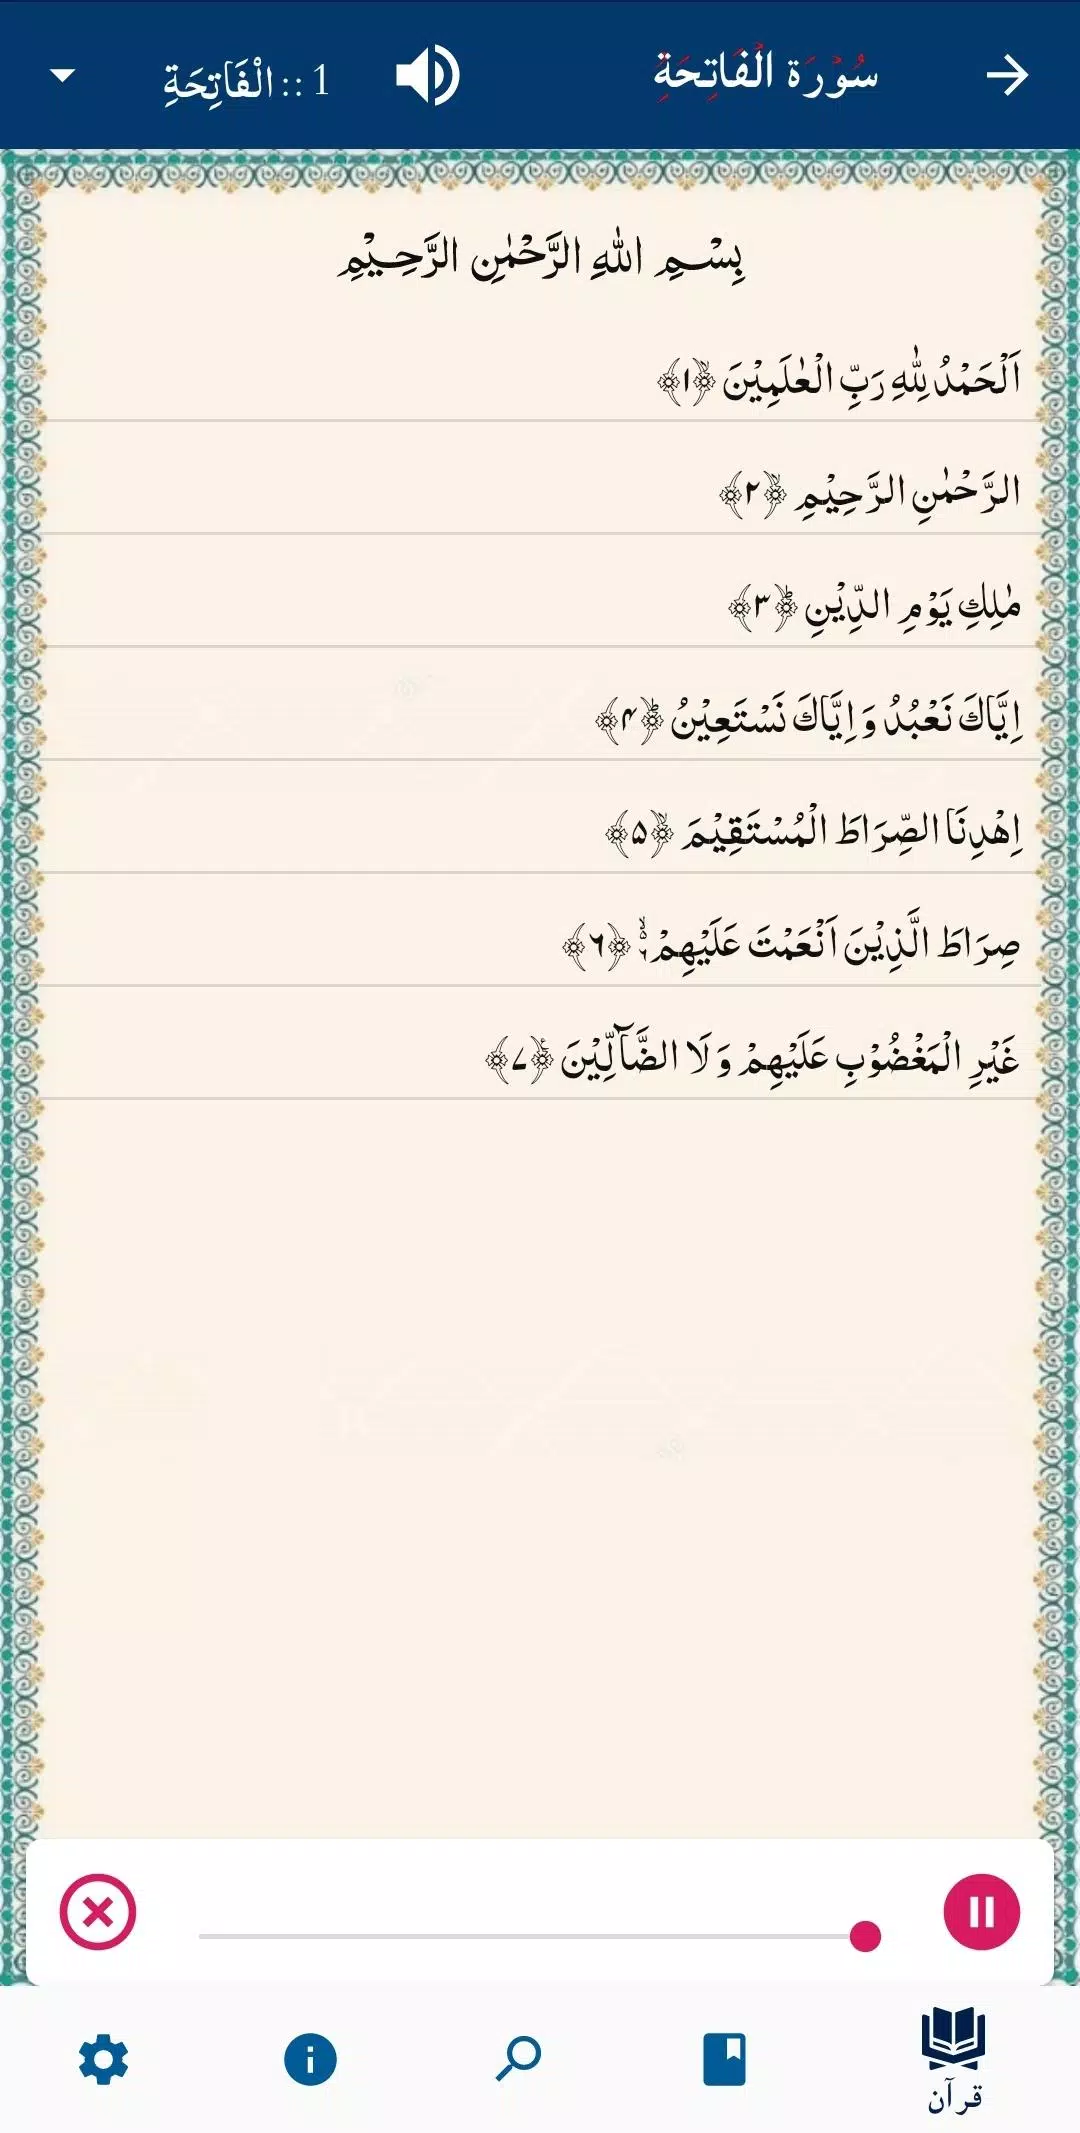 سُوْرَة الْفَاتِحَةِ
1 :: الْفَاتِحَةِ
بِسْمِ اللّٰهِ الرَّحْمٰنِ الرَّحِيْمِ
اَلْحَمْدُ لِلّٰهِ رَبِّ الْعٰلَمِيْنَ ﴿ۙ۱﴾
الرَّحْمٰنِ الرَّحِيْمِ ﴿ۙ۲﴾
مٰلِكِ يَوْمِ الدِّيْنِ ﴿ؕ۳﴾
اِيَّاكَ نَعْبُدُ وَ اِيَّاكَ نَسْتَعِيْنُ ﴿ؕ۴﴾
اِهْدِنَا الصِّرَاطَ الْمُسْتَقِيْمَ ﴿ۙ۵﴾
صِرَاطَ الَّذِيْنَ اَنْعَمْتَ عَلَيْهِمْ ۬ۙ ﴿۶﴾
غَيْرِ الْمَغْضُوْبِ عَلَيْهِمْ وَ لَا الضَّآلِّيْنَ ﴿۷﴾
قرآن